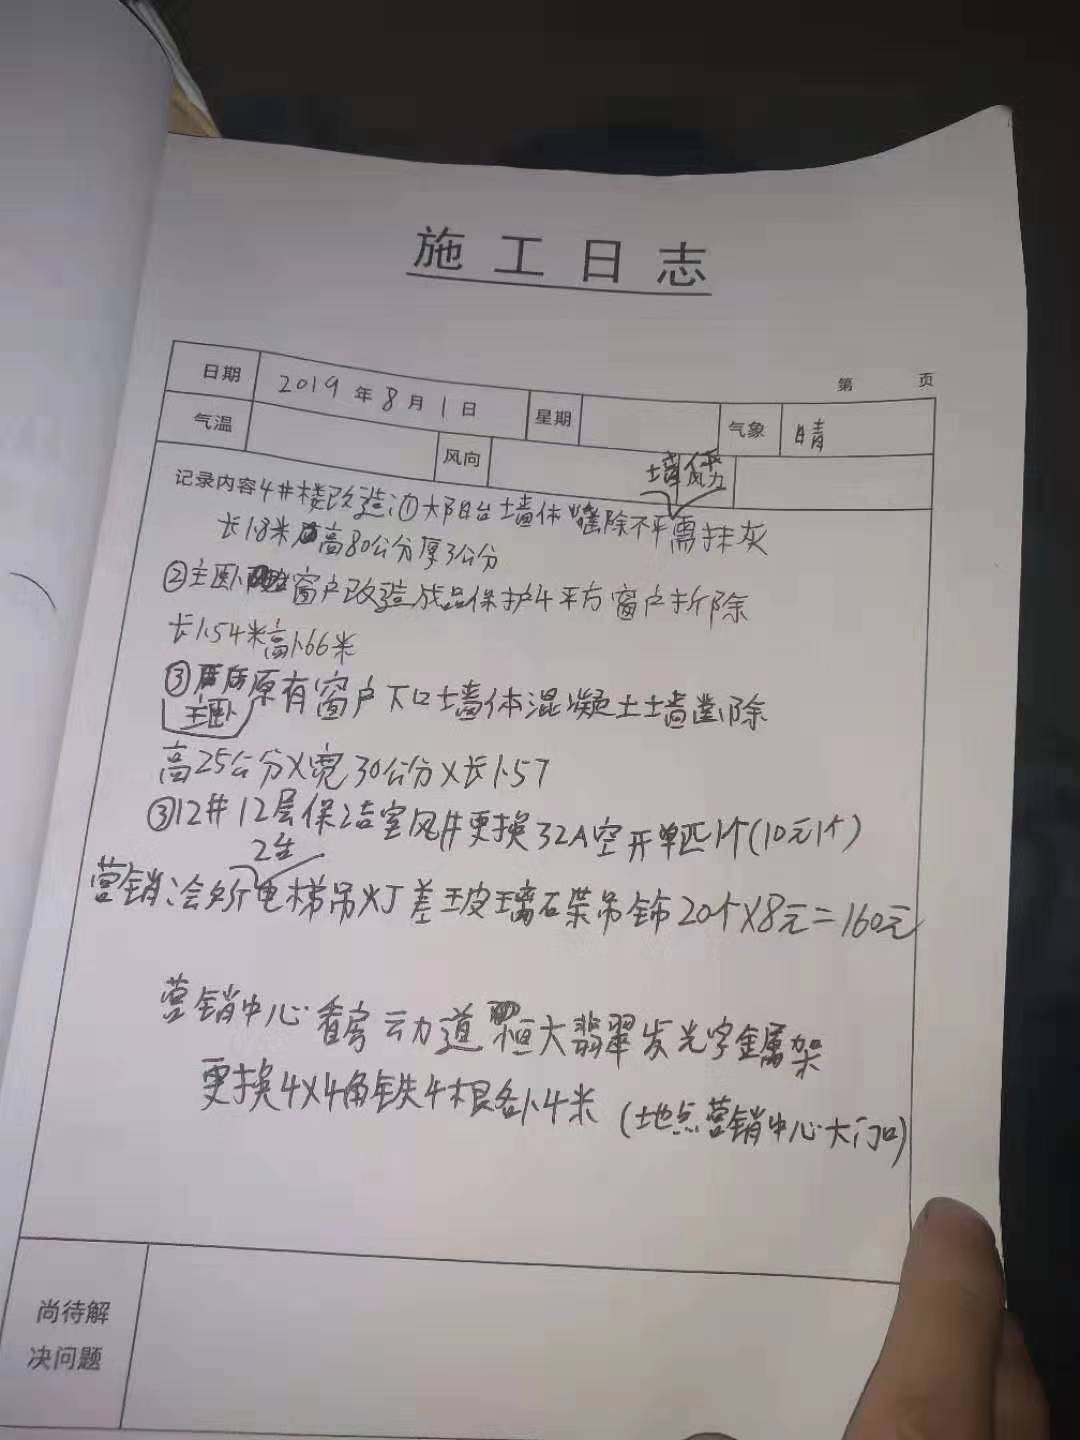 施工日志
第 页
日期 2019年8月1日 星期 气象 晴
气温 风向
墙体
记录内容 4#楼改造:①大阳台墙体凿除不平需抹灰
长1.8米高80公分厚3公分
②主卧窗户改造成品保护4平方窗户拆除
长1.54米高1.66米
③原有窗户下口墙体混凝土墙凿除
主卧
高25公分X宽30公分X长1.57
③12#12层保洁室风井更换32A空开单匹1个(10元1个)
2生
营销会所电梯吊灯差玻璃石葉吊饰20个X8元=160元
营销中心看房动道恒大翡翠发光字金属架
更换4X4角铁4根各1.4米 (地点营销中心大门口)
尚待解
决问题